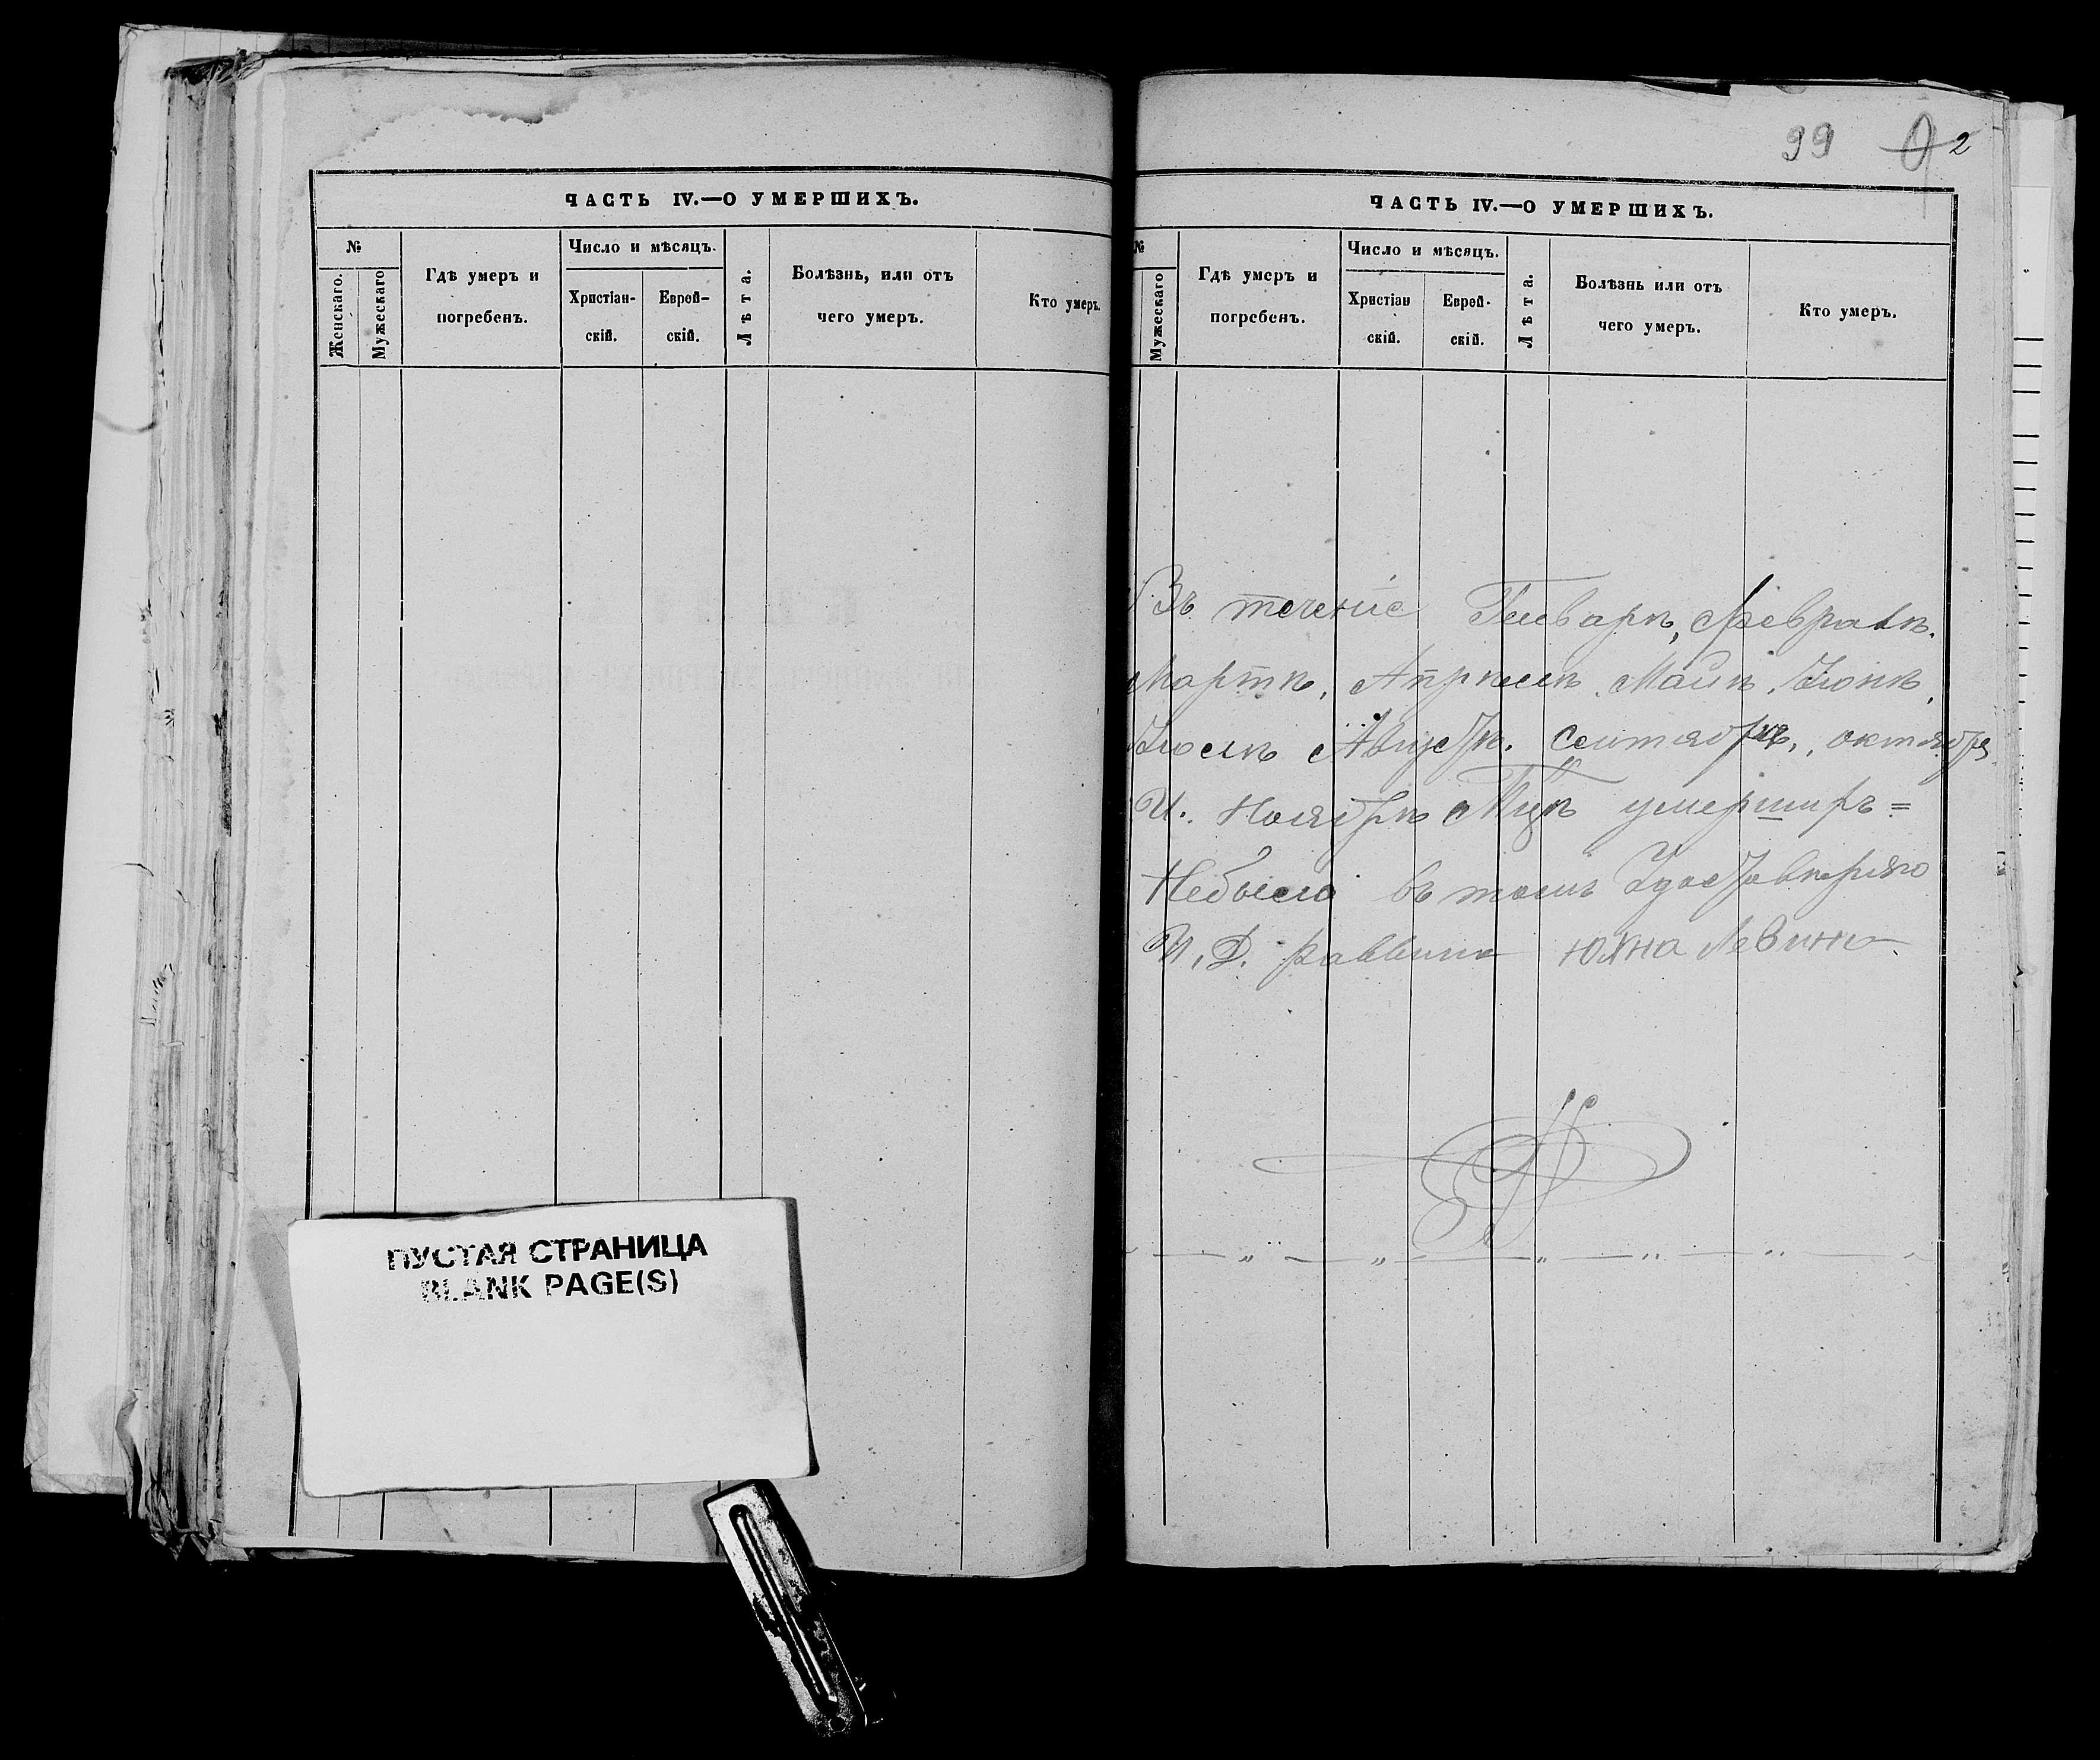 ЧАСТЬ IV.—О УМЕРШИХЪ.
№
Женскаго.
Мужескаго
Гдѣ умеръ и
погребенъ.
Число и мѣсяцъ.
Христіан-
скій.
Еврей-
скій.
Лѣта.
Болѣзнь, или отъ
чего умеръ.
Кто умеръ.
ПУСТАЯ СТРАНИЦА
BLANK PAGE(S)
99 2
ЧАСТЬ IV.—О УМЕРШИХЪ.
№
Мужескаго
Гдѣ умеръ и
погребенъ.
Число и мѣсяцъ.
Христіан
скій.
Еврей-
скій.
Лѣта.
Болѣзнь или отъ
чего умеръ.
Кто умеръ.
Въ теченіе Генварѣ, Февралѣ.
Мартѣ, Апрѣлѣ, Маиѣ, Iюнѣ,
Iюлѣ Августѣ. Сентября, октября
И. Ноябрѣ М-цѣ умершихъ =
Небыло въ томъ Удостовѣряю
И. Д. раввина Юхна Левинъ